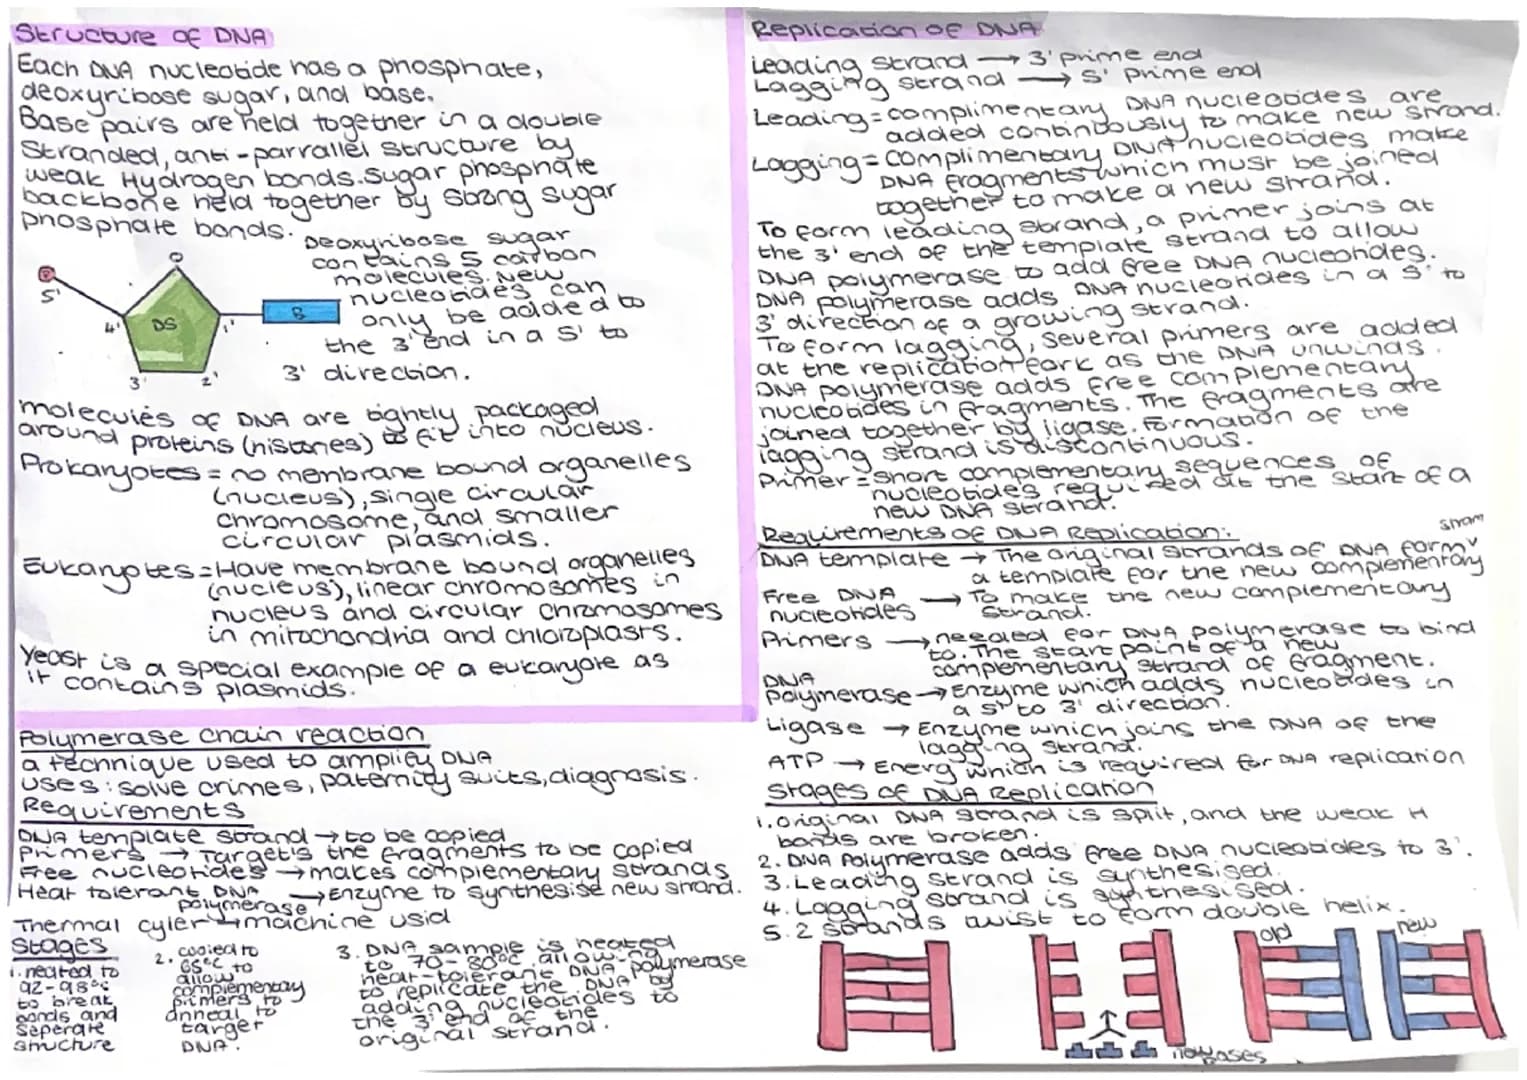 Structure of DNA
Each DNA nucleotide has a phosphate,
deoxyribose sugar, and base.
Base pairs are held together in a double
stranded, anti-parrallel structure by
weak Hydrogen bonds. Sugar phosphate
backbone held together by strong sugar
phosphate bonds.
Deoxyribose sugar
contains 5 carbon
molecules. New
nucleotides can
only be added to
the 3' end in a 5' to
3' direction.
P
5'
O
4'
DS
1'
B
3'
2'
molecules of DNA are tightly packaged
around proteins (histones) to fit into nucleus.
Prokaryotes = no membrane bound organelles
(nucleus), single circular
chromosome, and smaller
circular plasmids.
Eukaryotes = Have membrane bound organelles
(nucleus), linear chromosomes in
nucleus and circular chromosomes
in mitochondria and chloroplasts.
Yeast is a special example of a eukaryote as
it contains plasmids.
Polymerase chain reaction
a technique used to amplify DNA
uses: solve crimes, paternity suits, diagnosis.
Requirements
DNA template strand → to be copied
Primers → Target's the fragments to be copied
Free nucleotides → makes complementary strands
Heat tolerant DNA
polymerase → Enzyme to synthesise new strand.
Thermal cyler → machine usid
Stages
1. heated to
92-98°c
to break
bonds and
seperate
structure
2. cooled to
65°C to
allow
complementary
primers to
anneal to
target
DNA.
3. DNA sample is heated
to 70-80°c allowing
heat-tolerant DNA polymerase
to replicate the DNA by
adding nucleotides to
the 3' end of the
original strand.
Replication of DNA
Leading strand → 3' prime end
Lagging strand → 5' prime end
Leading = complimentary DNA nucleotides are
added continuously to make new strand.
Lagging = complimentary DNA nucleotides make
DNA fragments which must be joined
together to make a new strand.
To form leading strand, a primer joins at
the 3' end of the template strand to allow
DNA polymerase to add free DNA nucleotides.
DNA polymerase adds DNA nucleotides in a 5' to
3' direction of a growing strand.
To form lagging, several primers are added
at the replication fork as the DNA unwinds.
DNA polymerase adds free complementary
nucleotides in fragments. The fragments are
joined together by ligase. Formation of the
lagging strand is discontinuous.
Primer = short complementary sequences of
nucleotides required at the start of a
new DNA strand.
Requirements of DNA Replication:
DNA template → The original strands of DNA form
a template for the new complementary
Free DNA
nucleotides → To make the new complementary
strand.
Primers → needed for DNA polymerase to bind
to. The start point of a new
complementary strand of fragment.
DNA
polymerase → Enzyme which adds nucleotides in
a 5' to 3' direction.
Ligase → Enzyme which joins the DNA of the
lagging strand.
ATP → Energy which is required for DNA replication
Stages of DNA Replication
1. original DNA strand is split, and the weak H
bonds are broken.
2. DNA Polymerase adds free DNA nucleotides to 3'.
3. Leading strand is synthesised.
4. Lagging strand is synthesised.
5. 2 strands twist to form double helix.
old
new
new bases